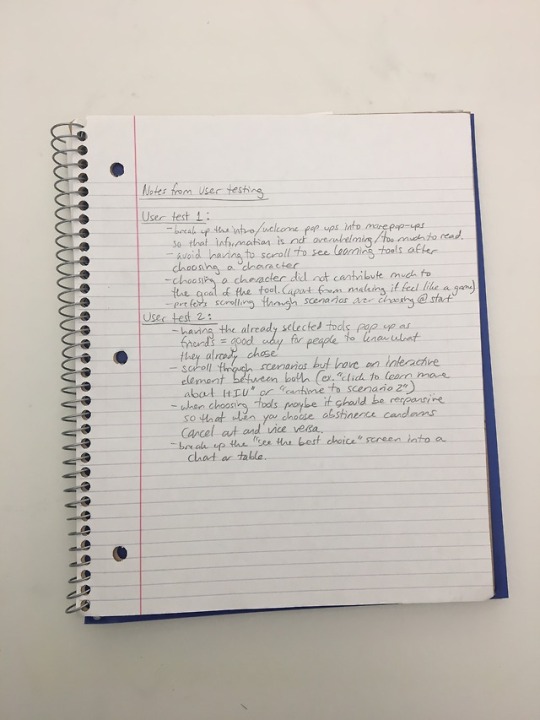 Notes from user testing
User test 1:
- break up the intro/welcome pop ups into more pop-ups
so that information is not overwhelming/too much to read.
- avoid having to scroll to see learning tools after
choosing a character
- choosing a character did not contribute much to
the goal of the tool (apart from making it feel like a game)
- prefers scrolling through scenarios over choosing @ start
User test 2:
- having the already selected tools pop up as
friends = good way for people to know what
they already chose
- scroll through scenarios but have an interactive
element between both (ex. "click to learn more
about HIV" or "continue to scenario 2")
- when choosing tools maybe it should be responsive
so that when you choose abstinence condoms
cancel out and vice versa.
- break up the "see the best choice" screen into a
chart or table.